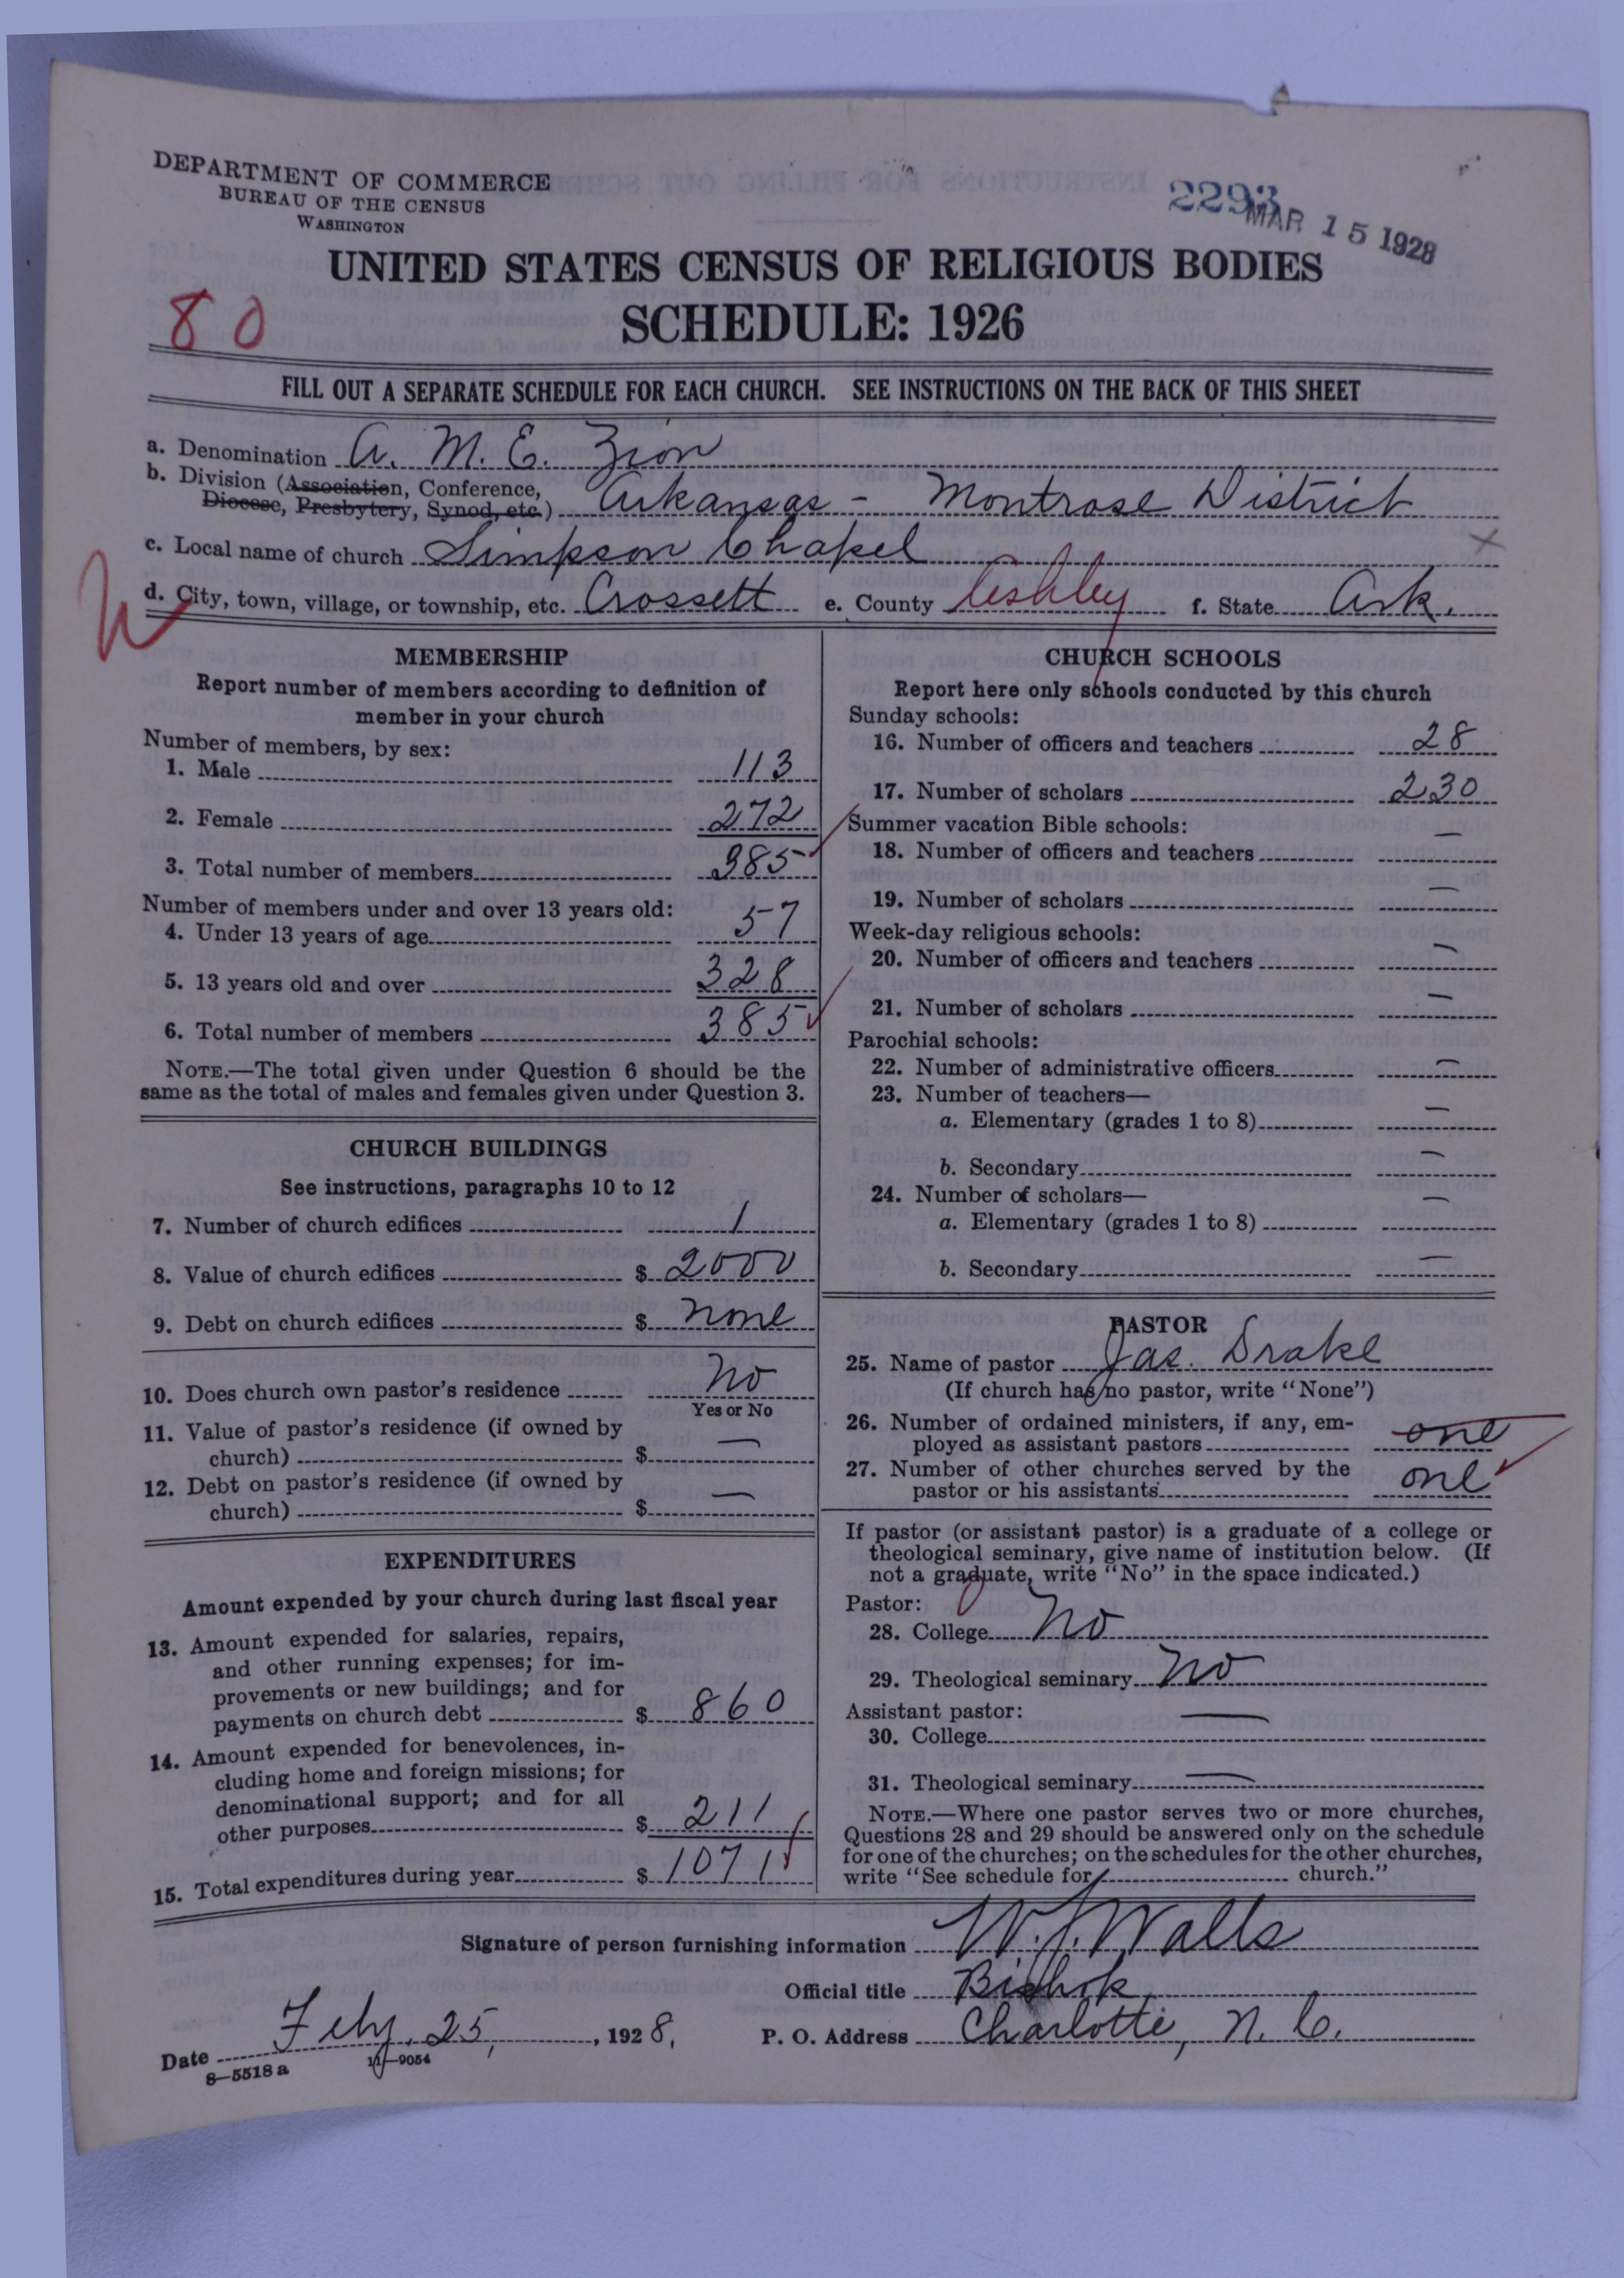 DEPARTMENT OF COMMERCE
BUREAU OF THE CENSUS
WASHINGTON
2293
MAR 15 1928
UNITED STATES CENSUS OF RELIGIOUS BODIES
SCHEDULE: 1926
80
FILL OUT A SEPARATE SCHEDULE FOR EACH CHURCH. SEE INSTRUCTIONS ON THE BACK OF THIS SHEET
a. Denomination A. M. E. Zion
b. Division (Association, Conference,
Diocese, Presbytery, Synod, etc.) Arkansas - Montrose District
c. Local name of church Simpson Chapel
x
d. City, town, village, or township, etc. Crossett e. County Ashley f. State Ark.
MEMBERSHIP
Report number of members according to definition of
member in your church
Number of members, by sex:
1. Male 113
2. Female 272
3. Total number of members 385
Number of members under and over 13 years old:
4. Under 13 years of age 57
5. 13 years old and over 328
6. Total number of members 385
NOTE.—The total given under Question 6 should be the
same as the total of males and females given under Question 3.
CHURCH BUILDINGS
See instructions, paragraphs 10 to 12
7. Number of church edifices 1
8. Value of church edifices $ 2000
9. Debt on church edifices $ none
10. Does church own pastor's residence No
Yes or No
11. Value of pastor's residence (if owned by
church) $ —
12. Debt on pastor's residence (if owned by
church) $ —
EXPENDITURES
Amount expended by your church during last fiscal year
13. Amount expended for salaries, repairs,
and other running expenses; for im-
provements or new buildings; and for
payments on church debt $ 860
14. Amount expended for benevolences, in-
cluding home and foreign missions; for
denominational support; and for all
other purposes $ 211
15. Total expenditures during year $ 1071
CHURCH SCHOOLS
Report here only schools conducted by this church
Sunday schools:
16. Number of officers and teachers 28
17. Number of scholars 230
Summer vacation Bible schools:
18. Number of officers and teachers —
19. Number of scholars —
Week-day religious schools:
20. Number of officers and teachers —
21. Number of scholars —
Parochial schools:
22. Number of administrative officers —
23. Number of teachers—
a. Elementary (grades 1 to 8) —
b. Secondary —
24. Number of scholars—
a. Elementary (grades 1 to 8) —
b. Secondary —
PASTOR
25. Name of pastor Jas. Drake
(If church has no pastor, write "None")
26. Number of ordained ministers, if any, em-
ployed as assistant pastors one
27. Number of other churches served by the
pastor or his assistants one
If pastor (or assistant pastor) is a graduate of a college or
theological seminary, give name of institution below. (If
not a graduate, write "No" in the space indicated.)
Pastor:
28. College No
29. Theological seminary No
Assistant pastor:
30. College —
31. Theological seminary —
NOTE.—Where one pastor serves two or more churches,
Questions 28 and 29 should be answered only on the schedule
for one of the churches; on the schedules for the other churches,
write "See schedule for church."
Signature of person furnishing information W. J. Walls
Official title Bishop
Date Feby. 25, 1928. P. O. Address Charlotte, N. C.
8—5518 a 11—9054